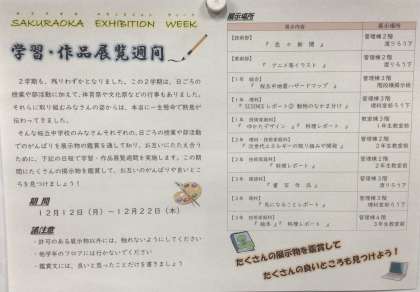 サクラオカ エキシビション ウィーク
SAKURAOKA EXHIBITION WEEK
学習・作品展覧週間
２学期も、残りわずかとなりました。この２学期は、日ごろの
授業や部活動に加えて、体育祭や文化祭などの行事もありました。
それらに取り組むみなさんの姿からは、本当に一生懸命で熱意が
伝わってきました。
そんな桜丘中学校のみなさんそれぞれの、日ごろの授業や部活動
でのがんばりを展示物の鑑賞を通して知り、お互いにたたえ合う
ために、下記の日程で学習・作品展覧週間を実施します。この期
間にたくさんの展示物を鑑賞して、お互いのがんばりや良いとこ
ろを見つけましょう！
期 間
１２月１２日（月）～１２月２２日（木）
諸注意
・許可のある展示物以外には、触れないようにしてください
・他学年のフロアには行かないでください
・鑑賞文には、良いと思ったことだけを書きましょう
展示場所
展示内容 展示場所
【美術部】 管理棟２階
渡りろう下
管理棟３階
『 アニメ風イラスト 』 渡りろう下
【１年 総合】 管理棟３階
『 桜丘中地震・ハザードマップ 』 階段横掲示板
【１年 理科】 管理棟３階
『 SCIENCEレポート② 動物のなかま分け 』 理科室前ろう下
【１年 技術家庭科】 教室棟３階
『 ゆかたデザイン 』『 料理レポート 』 １年生教室前
【２年 理科】 管理棟３階
『 次世代エネルギーの取り組みや開発 』 渡りろう下
【２年 技術家庭科】
『 料理レポート 』 ２年生教室前
【３年 国語科】
『 書 写 作 品 』 渡りろう下
【３年 理科】 管理棟３階
『 気になることレポート 』 理科室前ろう下
【３年 技術家庭科】
『 絵本 』『 料理レポート 』 ３年生教室前
たくさんの展示物を鑑賞して
たくさんの良いところも見つけよう！